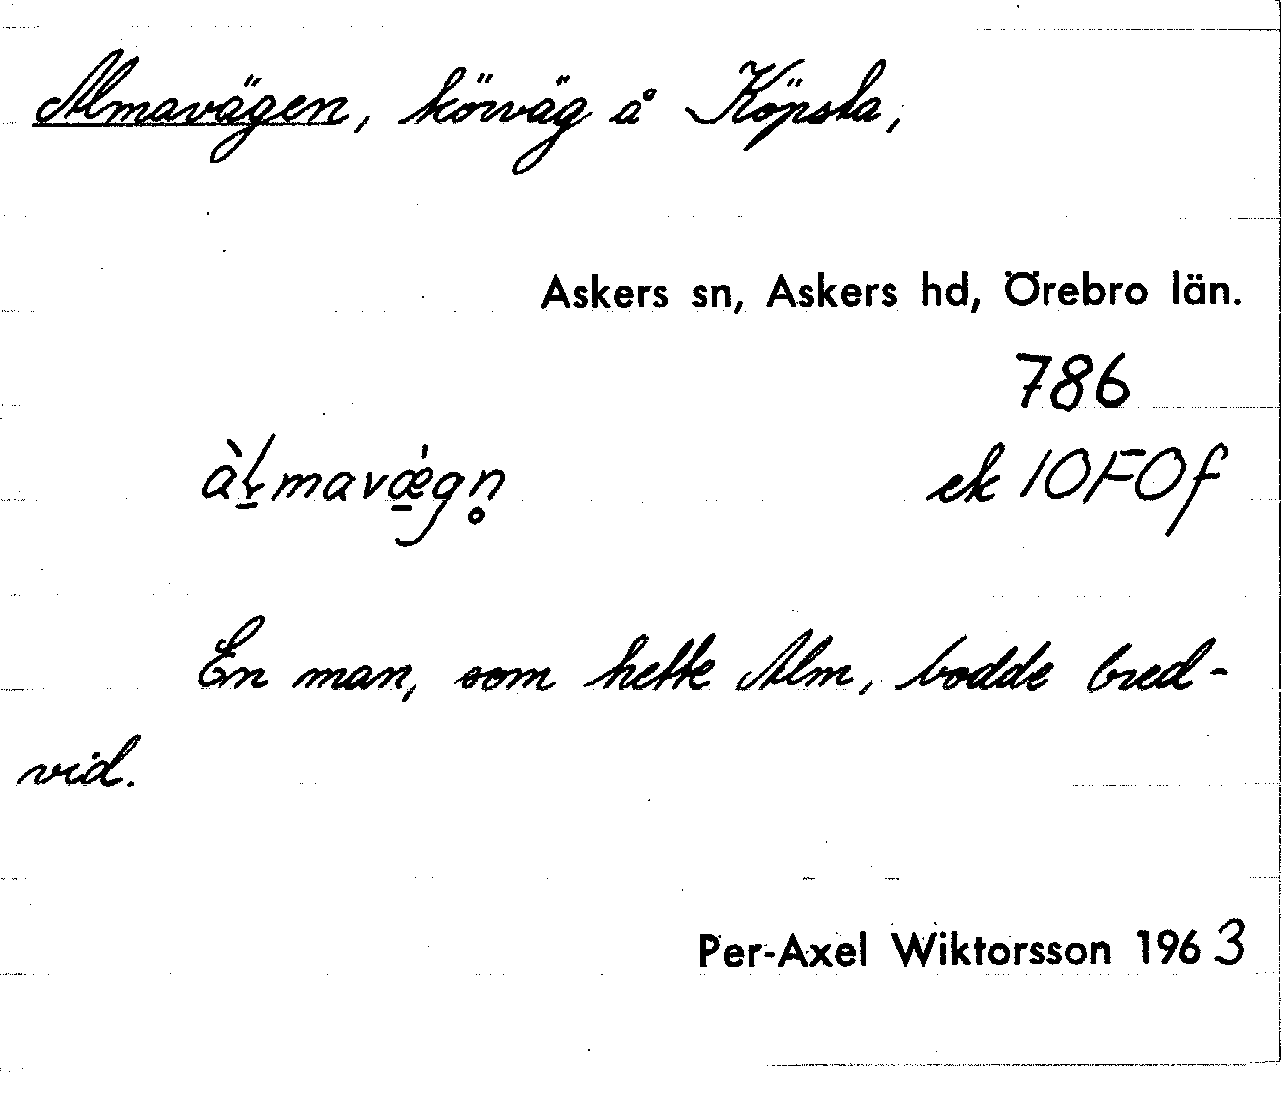 Almavägen, körväg å Köpsta,
Askers sn, Askers hd, Örebro län.
786
àl̵mavæ̠̀gn̥ ek 10F0f
En man, som hette Alm, bodde bred-
vid.
Per-Axel Wiktorsson 1963